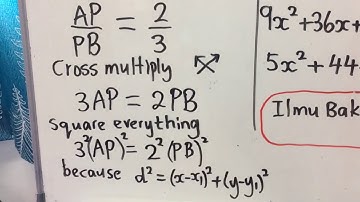 AP/PB = 2/3
Cross multiply
3AP = 2PB
Square everything
3²(AP)² = 2²(PB)²
because d² = (x-x₁)² + (y-y₁)²
9x² + 36x +
5x² + 44
Ilmu Bak